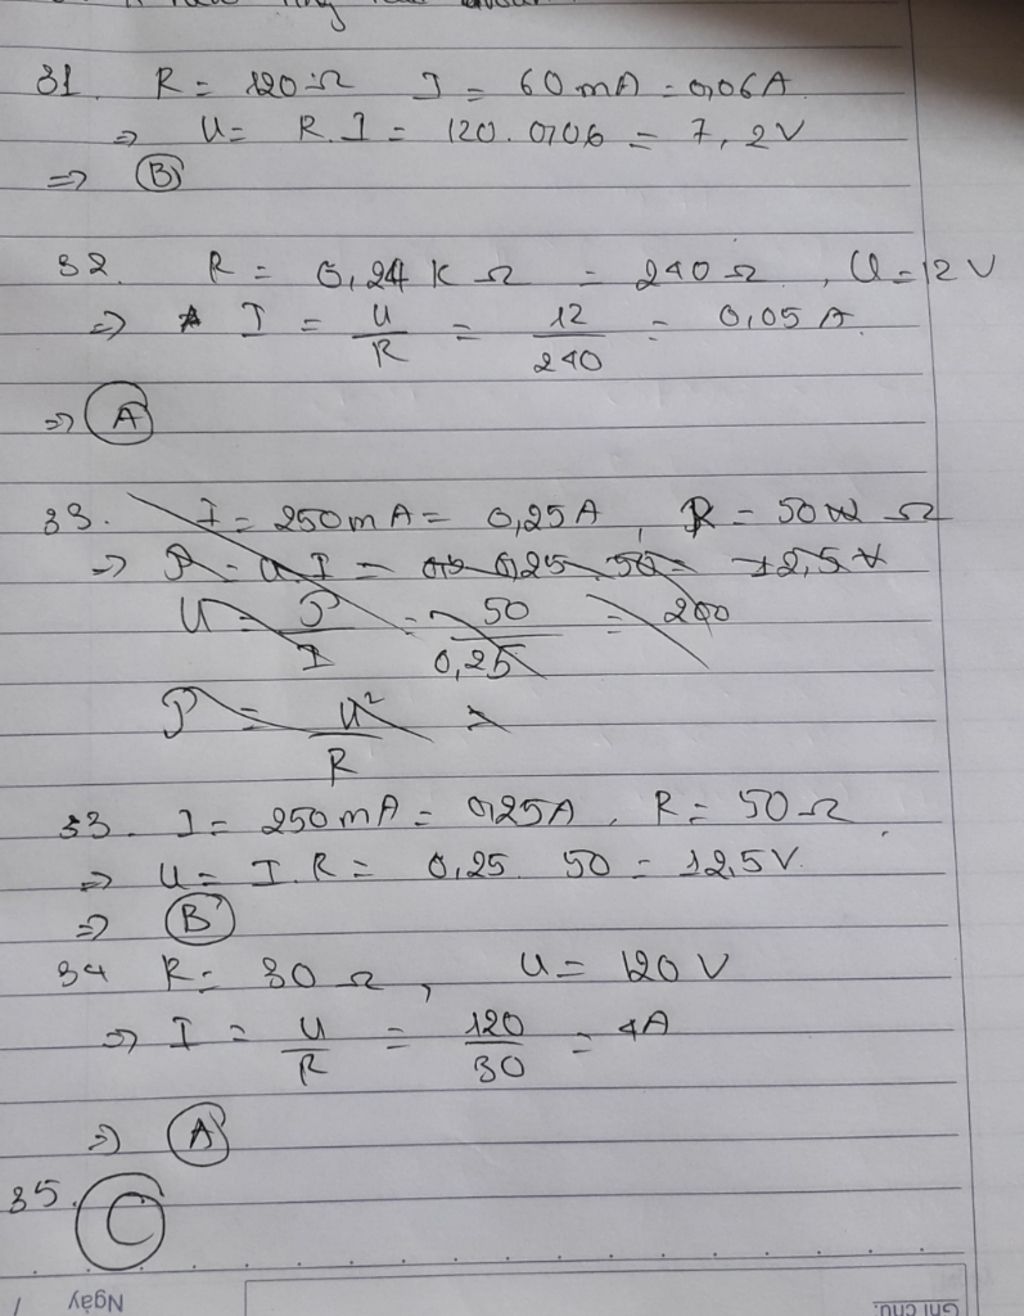 31. R = 120 Ω I = 60 mA = 0,06 A
=> U = R.I = 120. 0,06 = 7,2 V
=> B
32. R = 0,24 k Ω = 240 Ω , U = 12 V
=> I = U/R = 12/240 = 0,05 A.
=> A
33. I = 250 mA = 0,25 A , R = 50 Ω
=> P = U.I = 0,25. 50 = 12,5 V
U = P/I = 50/0,25 = 200
P = U²/R =
33. I = 250 mA = 0,25A , R = 50 Ω
=> U = I.R = 0,25. 50 = 12,5 V.
=> B
34 R = 30 Ω , U = 120 V
=> I = U/R = 120/30 = 4A
=> A
35. C
Ngày /
Ghi chú: